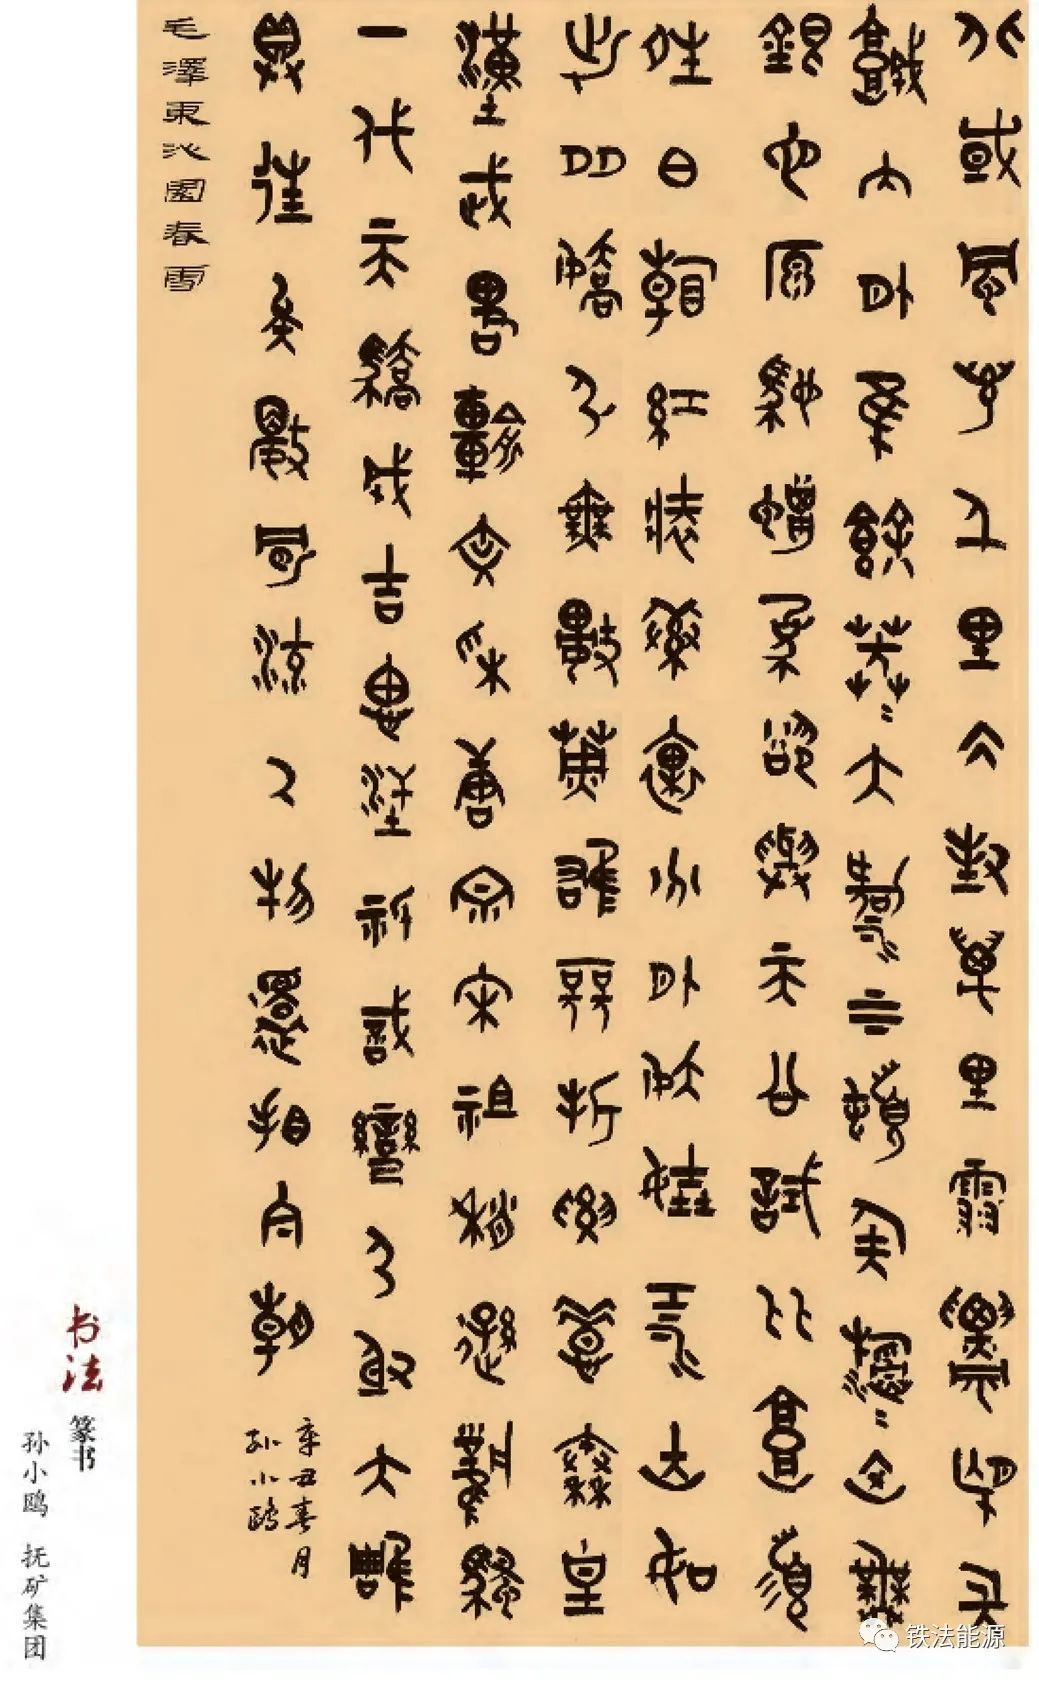 北國風光千里冰封萬里雪飄望長
城内外惟餘莽莽大河上下頓失滔滔山舞
銀蛇原馳蠟象欲與天公試比高須
晴日看紅裝素裹分外妖嬈江山如
此多嬌引無數英雄競折腰惜秦皇
漢武略輸文采唐宗宋祖稍遜風騷
一代天驕成吉思汗只識彎弓射大雕
俱往矣數風流人物還看今朝
辛丑春月
孙小鸥
毛澤東沁園春雪
书法
篆书
孙小鸥 抚矿集团
铁法能源